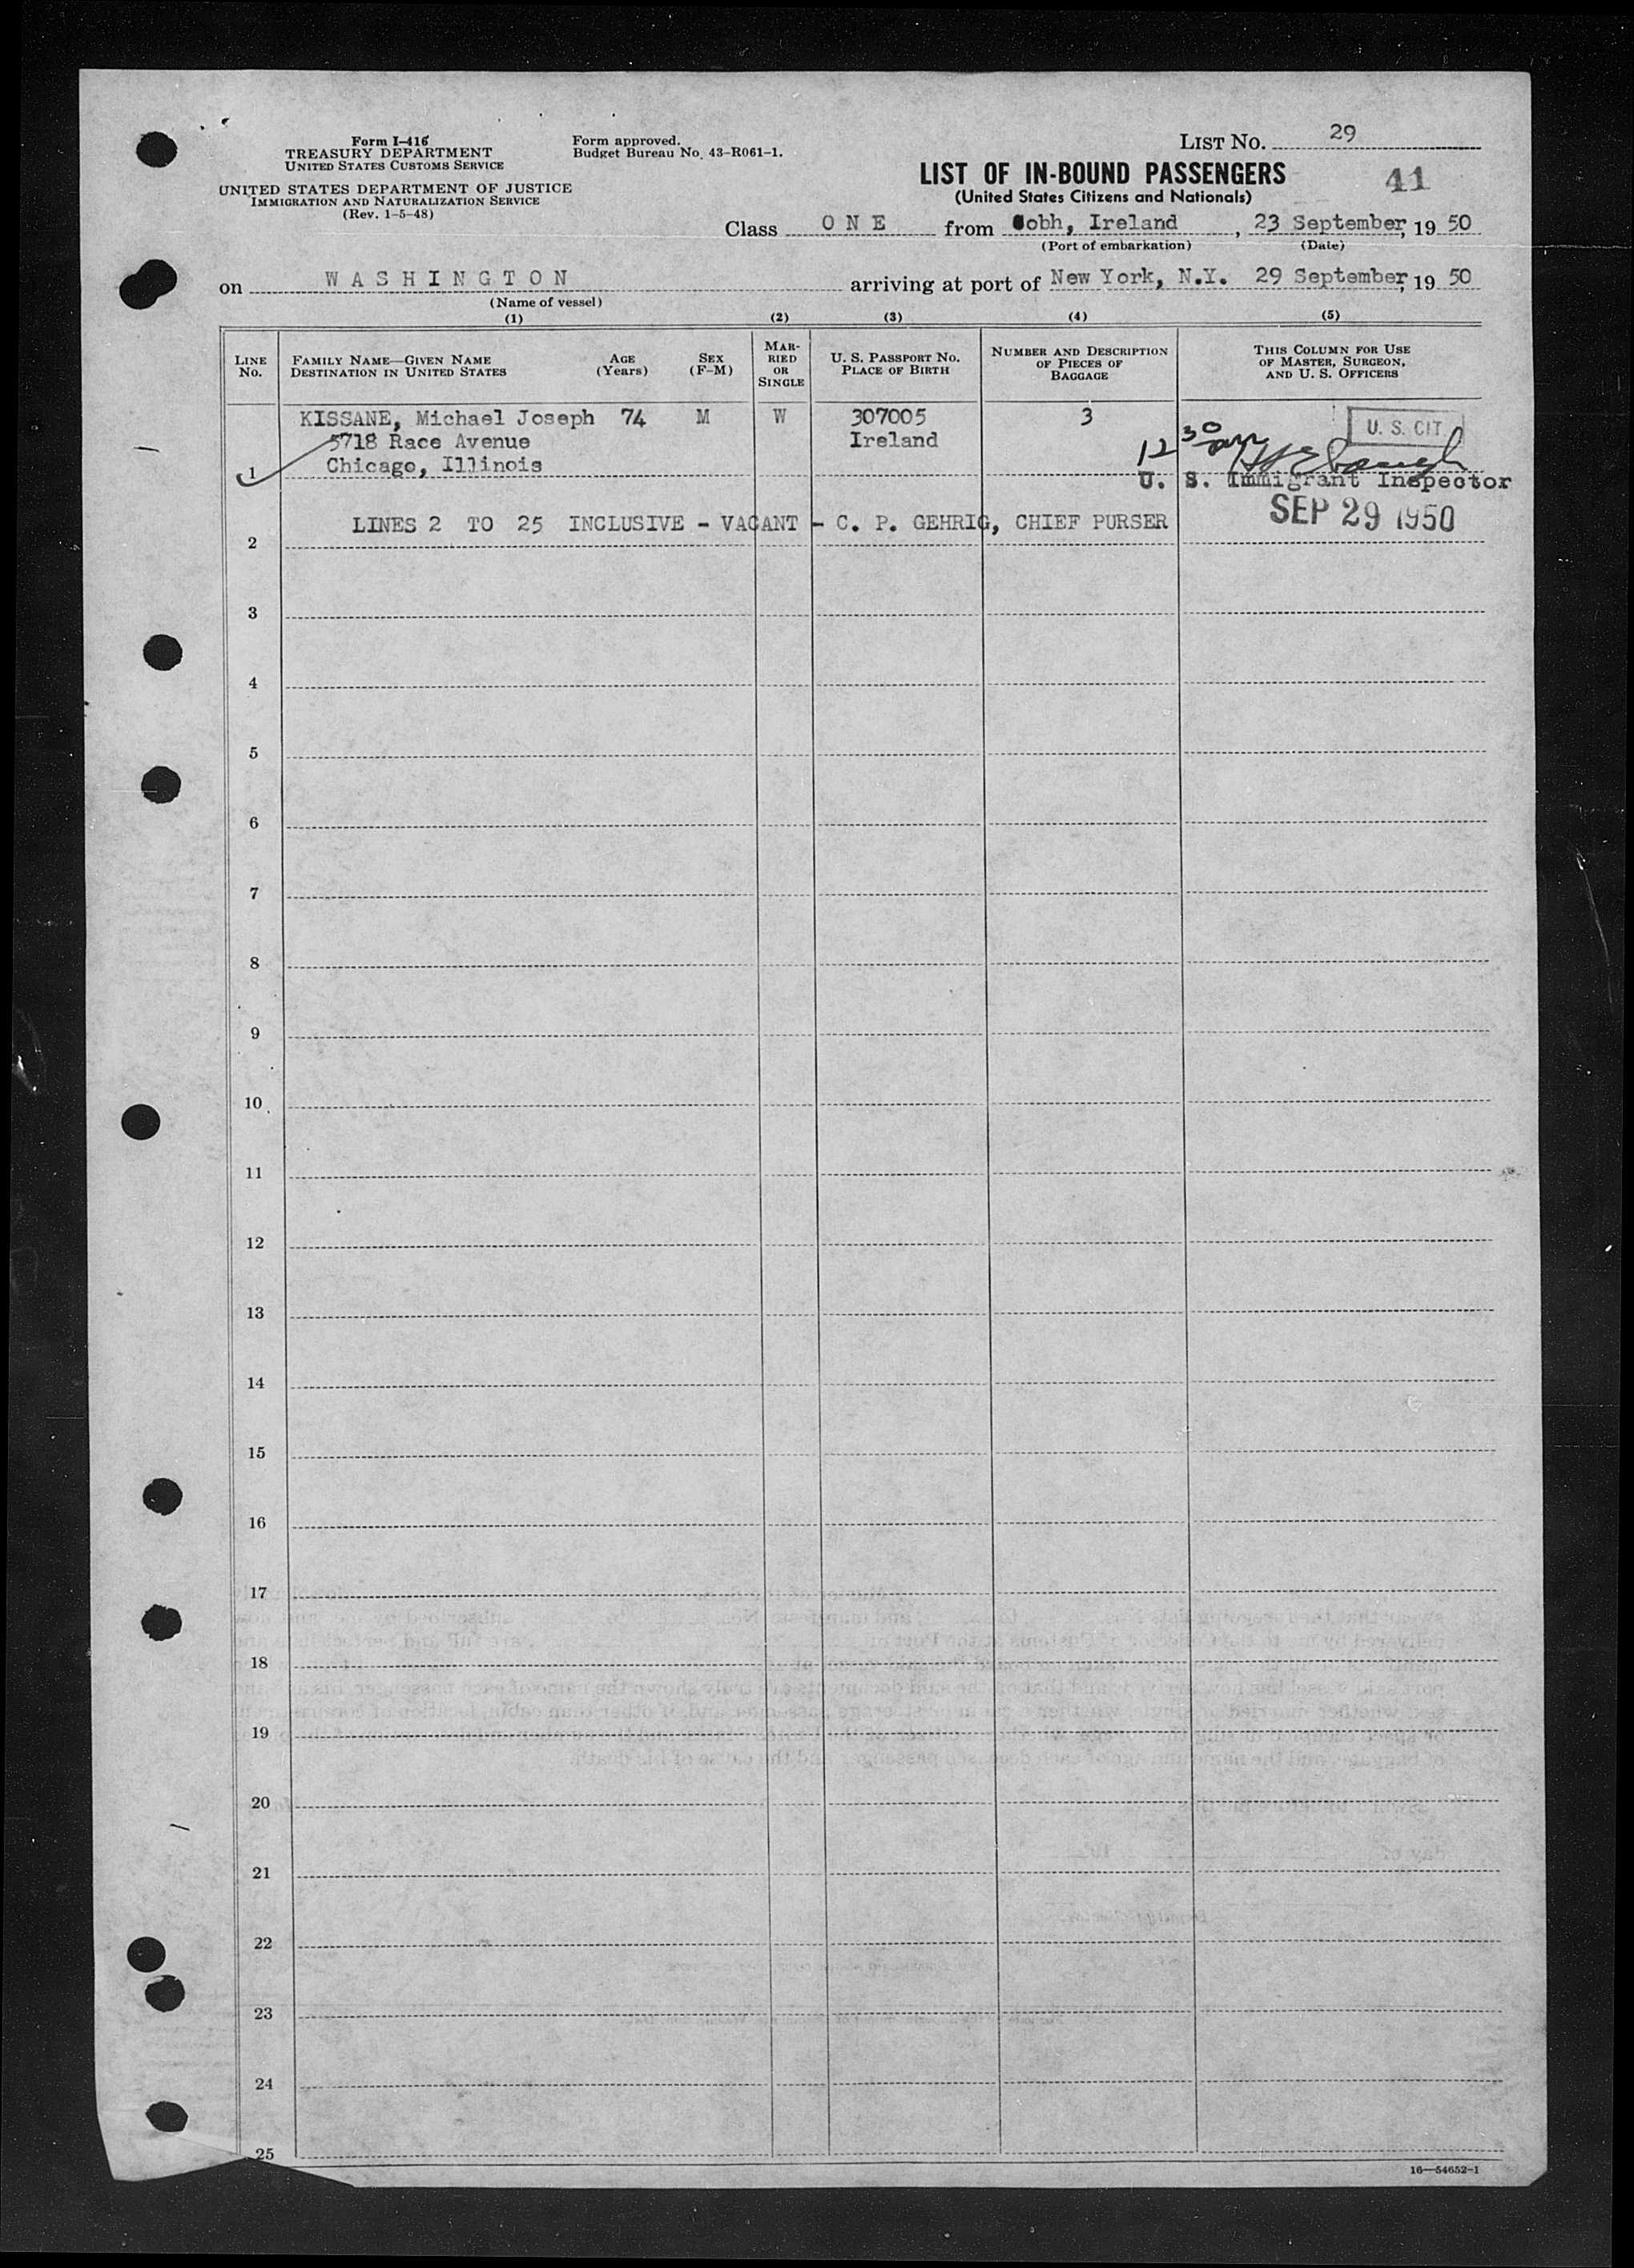 Form I-416
TREASURY DEPARTMENT
UNITED STATES CUSTOMS SERVICE
UNITED STATES DEPARTMENT OF JUSTICE
IMMIGRATION AND NATURALIZATION SERVICE
(Rev. 1-5-48)
Form approved.
Budget Bureau No. 43-R061-1.
LIST NO. 29
LIST OF IN-BOUND PASSENGERS
41
(United States Citizens and Nationals)
Class ONE from Cobh, Ireland, 23 September, 19 50
(Port of embarkation) (Date)
on WASHINGTON arriving at port of New York, N.Y. 29 September, 19 50
(Name of vessel)
(1) (2) (3) (4) (5)
LINE NO.
FAMILY NAME—GIVEN NAME
DESTINATION IN UNITED STATES
AGE (Years)
SEX (F-M)
MARRIED OR SINGLE
U. S. PASSPORT NO.
PLACE OF BIRTH
NUMBER AND DESCRIPTION OF PIECES OF BAGGAGE
THIS COLUMN FOR USE OF MASTER, SURGEON, AND U. S. OFFICERS
KISSANE, Michael Joseph 74 M W 307005 3
U. S. CIT.
5718 Race Avenue Ireland
12 30
1 Chicago, Illinois
U. S. Immigrant Inspector
SEP 29 1950
LINES 2 TO 25 INCLUSIVE - VACANT - C. P. GEHRIG, CHIEF PURSER
2
3
4
5
6
7
8
9
10
11
12
13
14
15
16
17
18
19
20
21
22
23
24
25
16—54652-1